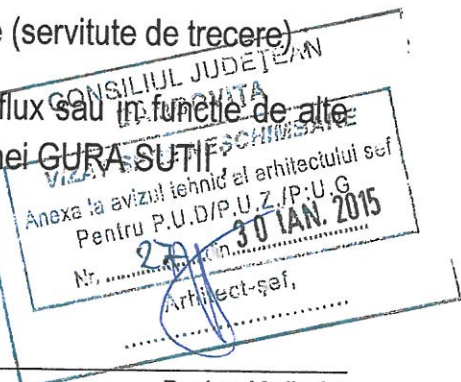 e (servitute de trecere)
flux sau in functie de alte
nei GURA SUTII,
CONSILIUL JUDEȚEAN
VIZAT SPRE NESCHIMBARE
Anexa la avizul tehnic al arhitectului sef
Pentru P.U.D/P.U.Z./P.U.G
Nr. 27 din 30 IAN. 2015
Arhitect-șef,